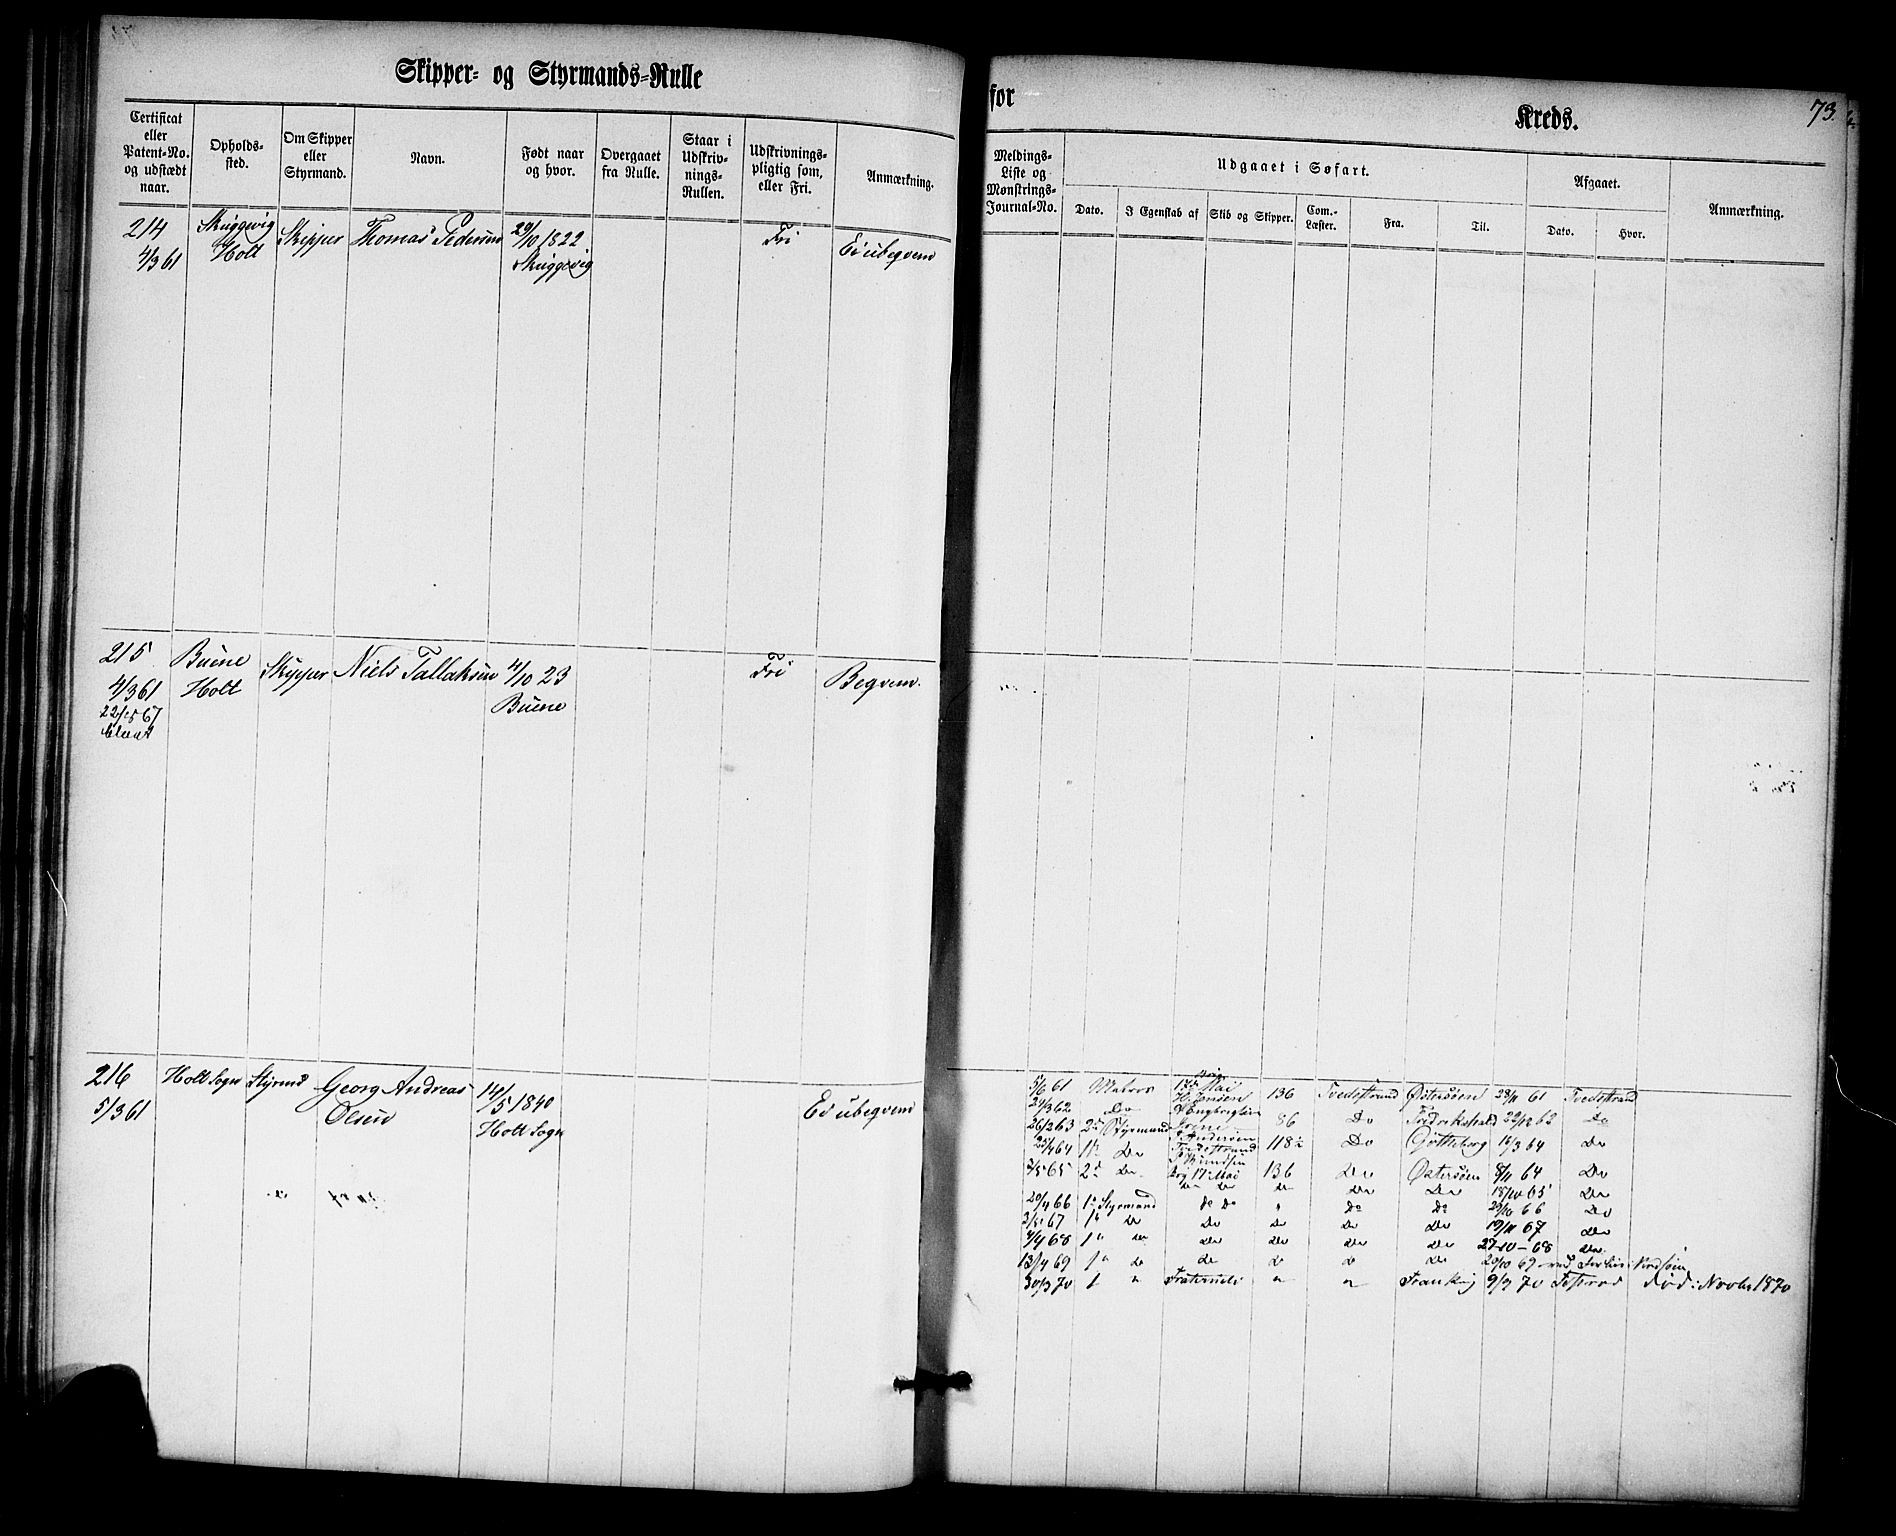 Skipper- og Styrmands-Rulle
for
Kreds.
73.
Certificat eller Patent-No. og udstædt naar.
Opholds-sted.
Om Skipper eller Styrmand.
Navn.
Født naar og hvor.
Overgaaet fra Rulle.
Staar i Udskriv-nings-Rullen.
Udskrivnings-pligtig som, eller Fri.
Anmærkning.
Meldings-Liste og Mønstrings-Journal-No.
Udgaaet i Søfart.
Dato.
I Egenskab af
Skib og Skipper.
Com.-Læster.
Fra.
Til.
Afgaaet.
Dato.
Hvor.
Anmærkning.
214 Skuggevig Skipper Thomas Pedersen 29/10 1822 Fri Ei ubeqvem
4/3 61 Holt Skuggevig
215 Buene Skipper Niels Tallaksen 4/10 23 Fri Beqvem.
4/3 61 Holt Buene
22/5 67
216 Holt Sogn Styrmd Georg Andreas 14/5 1840 Ei ubeqvem
5/3 61 Olsen Holt Sogn
5/6 61 Matros Brig 17de Mai H. Jensen 136 Tvedestrand Østersøen 23/11 61 Tvedestrand
24/3 62 Do 86 Do Fredrikshald 22/12 62 Do
26/2 63 2d Styrmand 118½ Do Gøtheborg 16/3 64 Do
25/4 64 1ste Do 136 Do Østersøen 8/11 64 Do
3/5 65 2d Do Brig 17 Mai Do Do Do 18/10 65 Do
20/4 66 1ste Styrmand Do Do " Do Do 29/10 66 Do
3/5 67 1ste Do Do Do Do Do 19/11 67 Do
4/4 68 1 " Do Do Do Do Do 27-10-68 Do
13/4 69 1 " Do Do Do Do Do 20/10 69
30/3 70 1 " " " 9/9 70 død i Novbr 1870